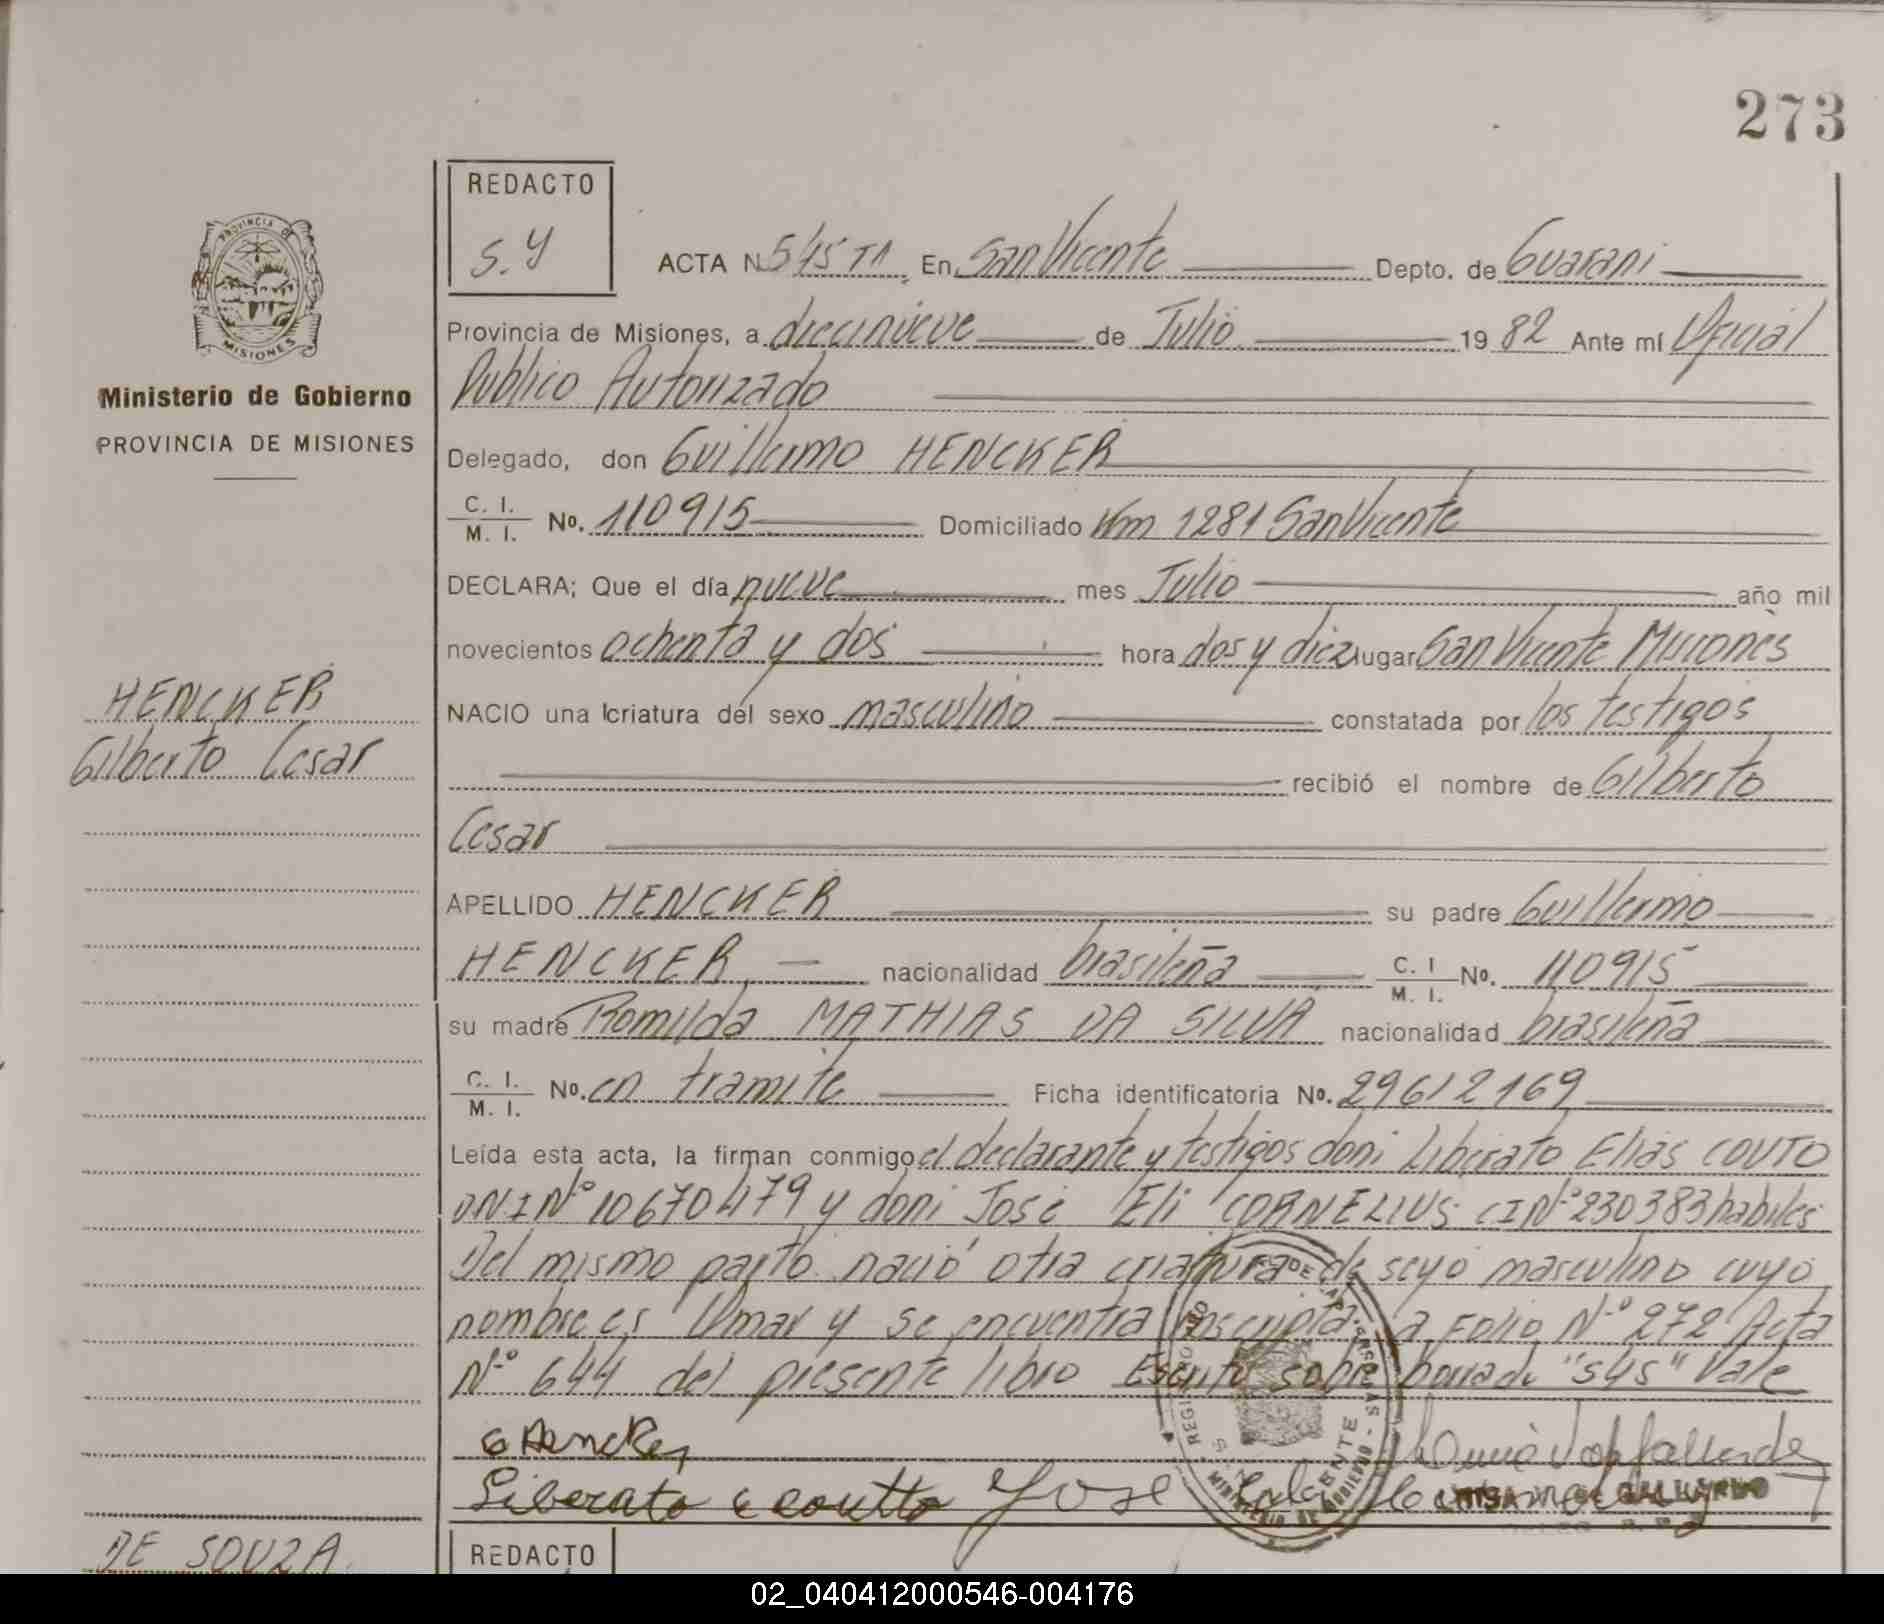 273
REDACTO
S.Y
ACTA N 545 TA. En San Vicente Depto. de Guarani
Provincia de Misiones, a diecinueve de Julio 1982 Ante mí Oficial
Publico Autorizado
Ministerio de Gobierno
PROVINCIA DE MISIONES
Delegado, don Guillermo HENCKER
C. I. M. I. No. 110915 Domiciliado Km 1281 San Vicente
DECLARA; Que el día nueve mes Julio año mil
novecientos ochenta y dos hora dos y diez lugar San Vicente Misiones
HENCKER
Gilberto Cesar
NACIO una criatura del sexo masculino constatada por los testigos
recibió el nombre de Gilberto
Cesar
APELLIDO HENCKER su padre Guillermo
HENCKER nacionalidad brasileña C. I M. I. No. 110915
su madre Romilda MATHIAS DA SILVA nacionalidad brasileña
C. I. M. I. No. en tramite Ficha identificatoria No. 29612169
Leída esta acta, la firman conmigo el declarante y testigos don: Liberato Elias COUTO
DNI Nº 10670479 y don: José Eli CORNELIUS CI Nº 230383 habiles
Del mismo parto nació otra criatura de sexo masculino cuyo
nombre es Omar y se encuentra inscripta a Folio Nº 272 Acta
Nº 644 del presente libro Escrito sobre borrado "545" Vale
G Hencker
Liberato e coutto Jose
REGISTRO
MINISTERIO DE GOBIERNO
DE SOUZA
REDACTO
02_040412000546-004176